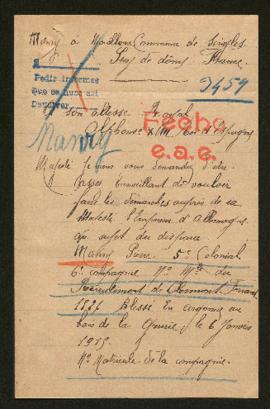 Manry a Nadhom Commune de Singles
Puy de dome France
Pedir informes
Que se haga así
Devolver
9459
son altesse Royal
Alfhonse XIII
Fecho
e.a.e.
Manry
Majesté je viens vous demander d'être
assez bienveillant de vouloir
faire les démarches auprès de sa
Majesté l'Empereur d'Allemagne
au sujet du disparu
Manry Pierre 5e Colonial
6e compagnie No Mle du
Recrutement de Clermont Ferrand
1526 Blessé En argonne au
bois de la Grurie le 6 Janvier
1915
No Matricule de la compagnie